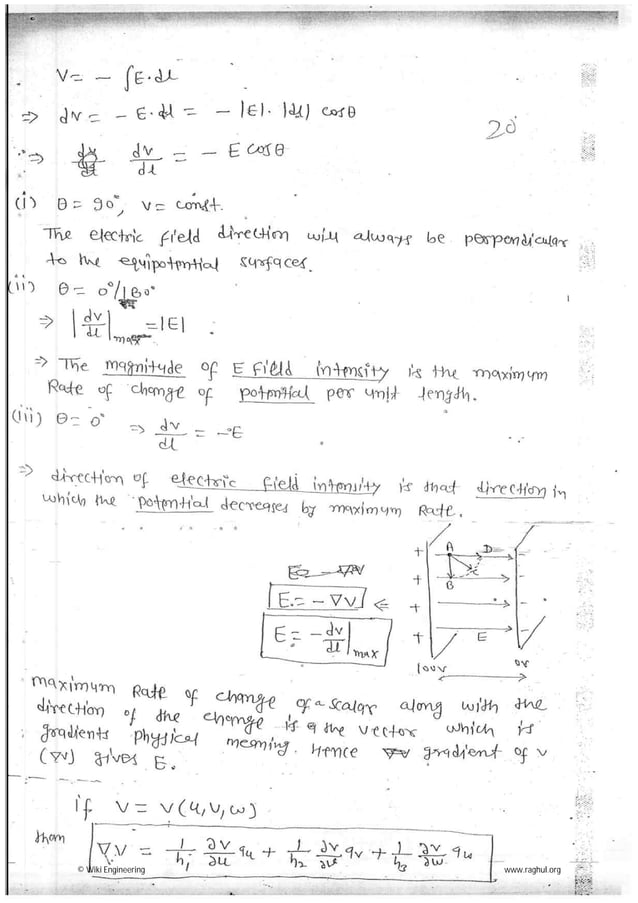 V = - ∫E.dl
⇒ dv = - E.dl = - |E|. |dl| cosθ
20
∴⇒ dv/dl = - E cosθ
(i) θ = 90°, V = const.
The electric field direction will always be perpendicular
to the equipotential surfaces.
(ii) θ = 0°/180°
⇒ |dv/dl|max = |E| .
⇒ The magnitude of E Field intensity is the maximum
Rate of change of potential per unit length.
(iii) θ = 0° ⇒ dv/dl = -E
⇒ direction of electric field intensity is that direction in
which the potential decreases by maximum Rate.
E = - ∇V
E = - ∇V ⇐
E = - dv/dl|max
+ A D -
+ B C -
+ -
+ E -
100V 0V
maximum Rate of change of a scalar along with the
direction of the change is a the vector which is
gradients physical meaning. Hence ∇V gradient of V
(∇V) gives E.
if V = V(u,v,w)
then ∇V = 1/h1 ∂V/∂u au + 1/h2 ∂V/∂v av + 1/h3 ∂V/∂w aw
© Wiki Engineering www.raghul.org